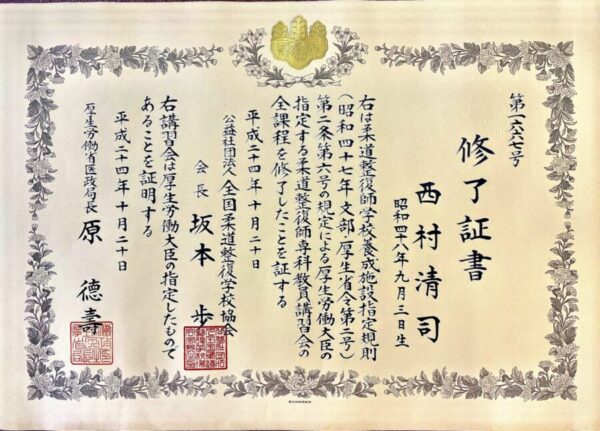 第一六六七号
修了証書
西村清司
昭和四十八年九月三日生
右は柔道整復師学校養成施設指定規則
(昭和四十七年文部・厚生省令第二号)
第二条第六号の規定による厚生労働大臣の
指定する柔道整復師専科教員講習会の
全課程を修了したことを証する
平成二十四年十月二十日
公益社団法人 全国柔道整復学校協会
会長 坂本歩
右講習会は厚生労働大臣の指定したもので
あることを証明する
平成二十四年十月二十日
厚生労働省医政局長 原德壽